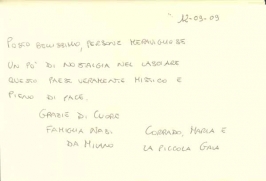 12-03-09
POSTO BELLISSIMO, PERSONE MERAVIGLIOSE
UN PO' DI NOSTALGIA NEL LASCIARE
QUESTO PAESE VERAMENTE MISTICO E
PIENO DI PACE.
GRAZIE DI CUORE
FAMIGLIA NASI CORRADO, MARLA E
DA MILANO LA PICCOLA GAIA